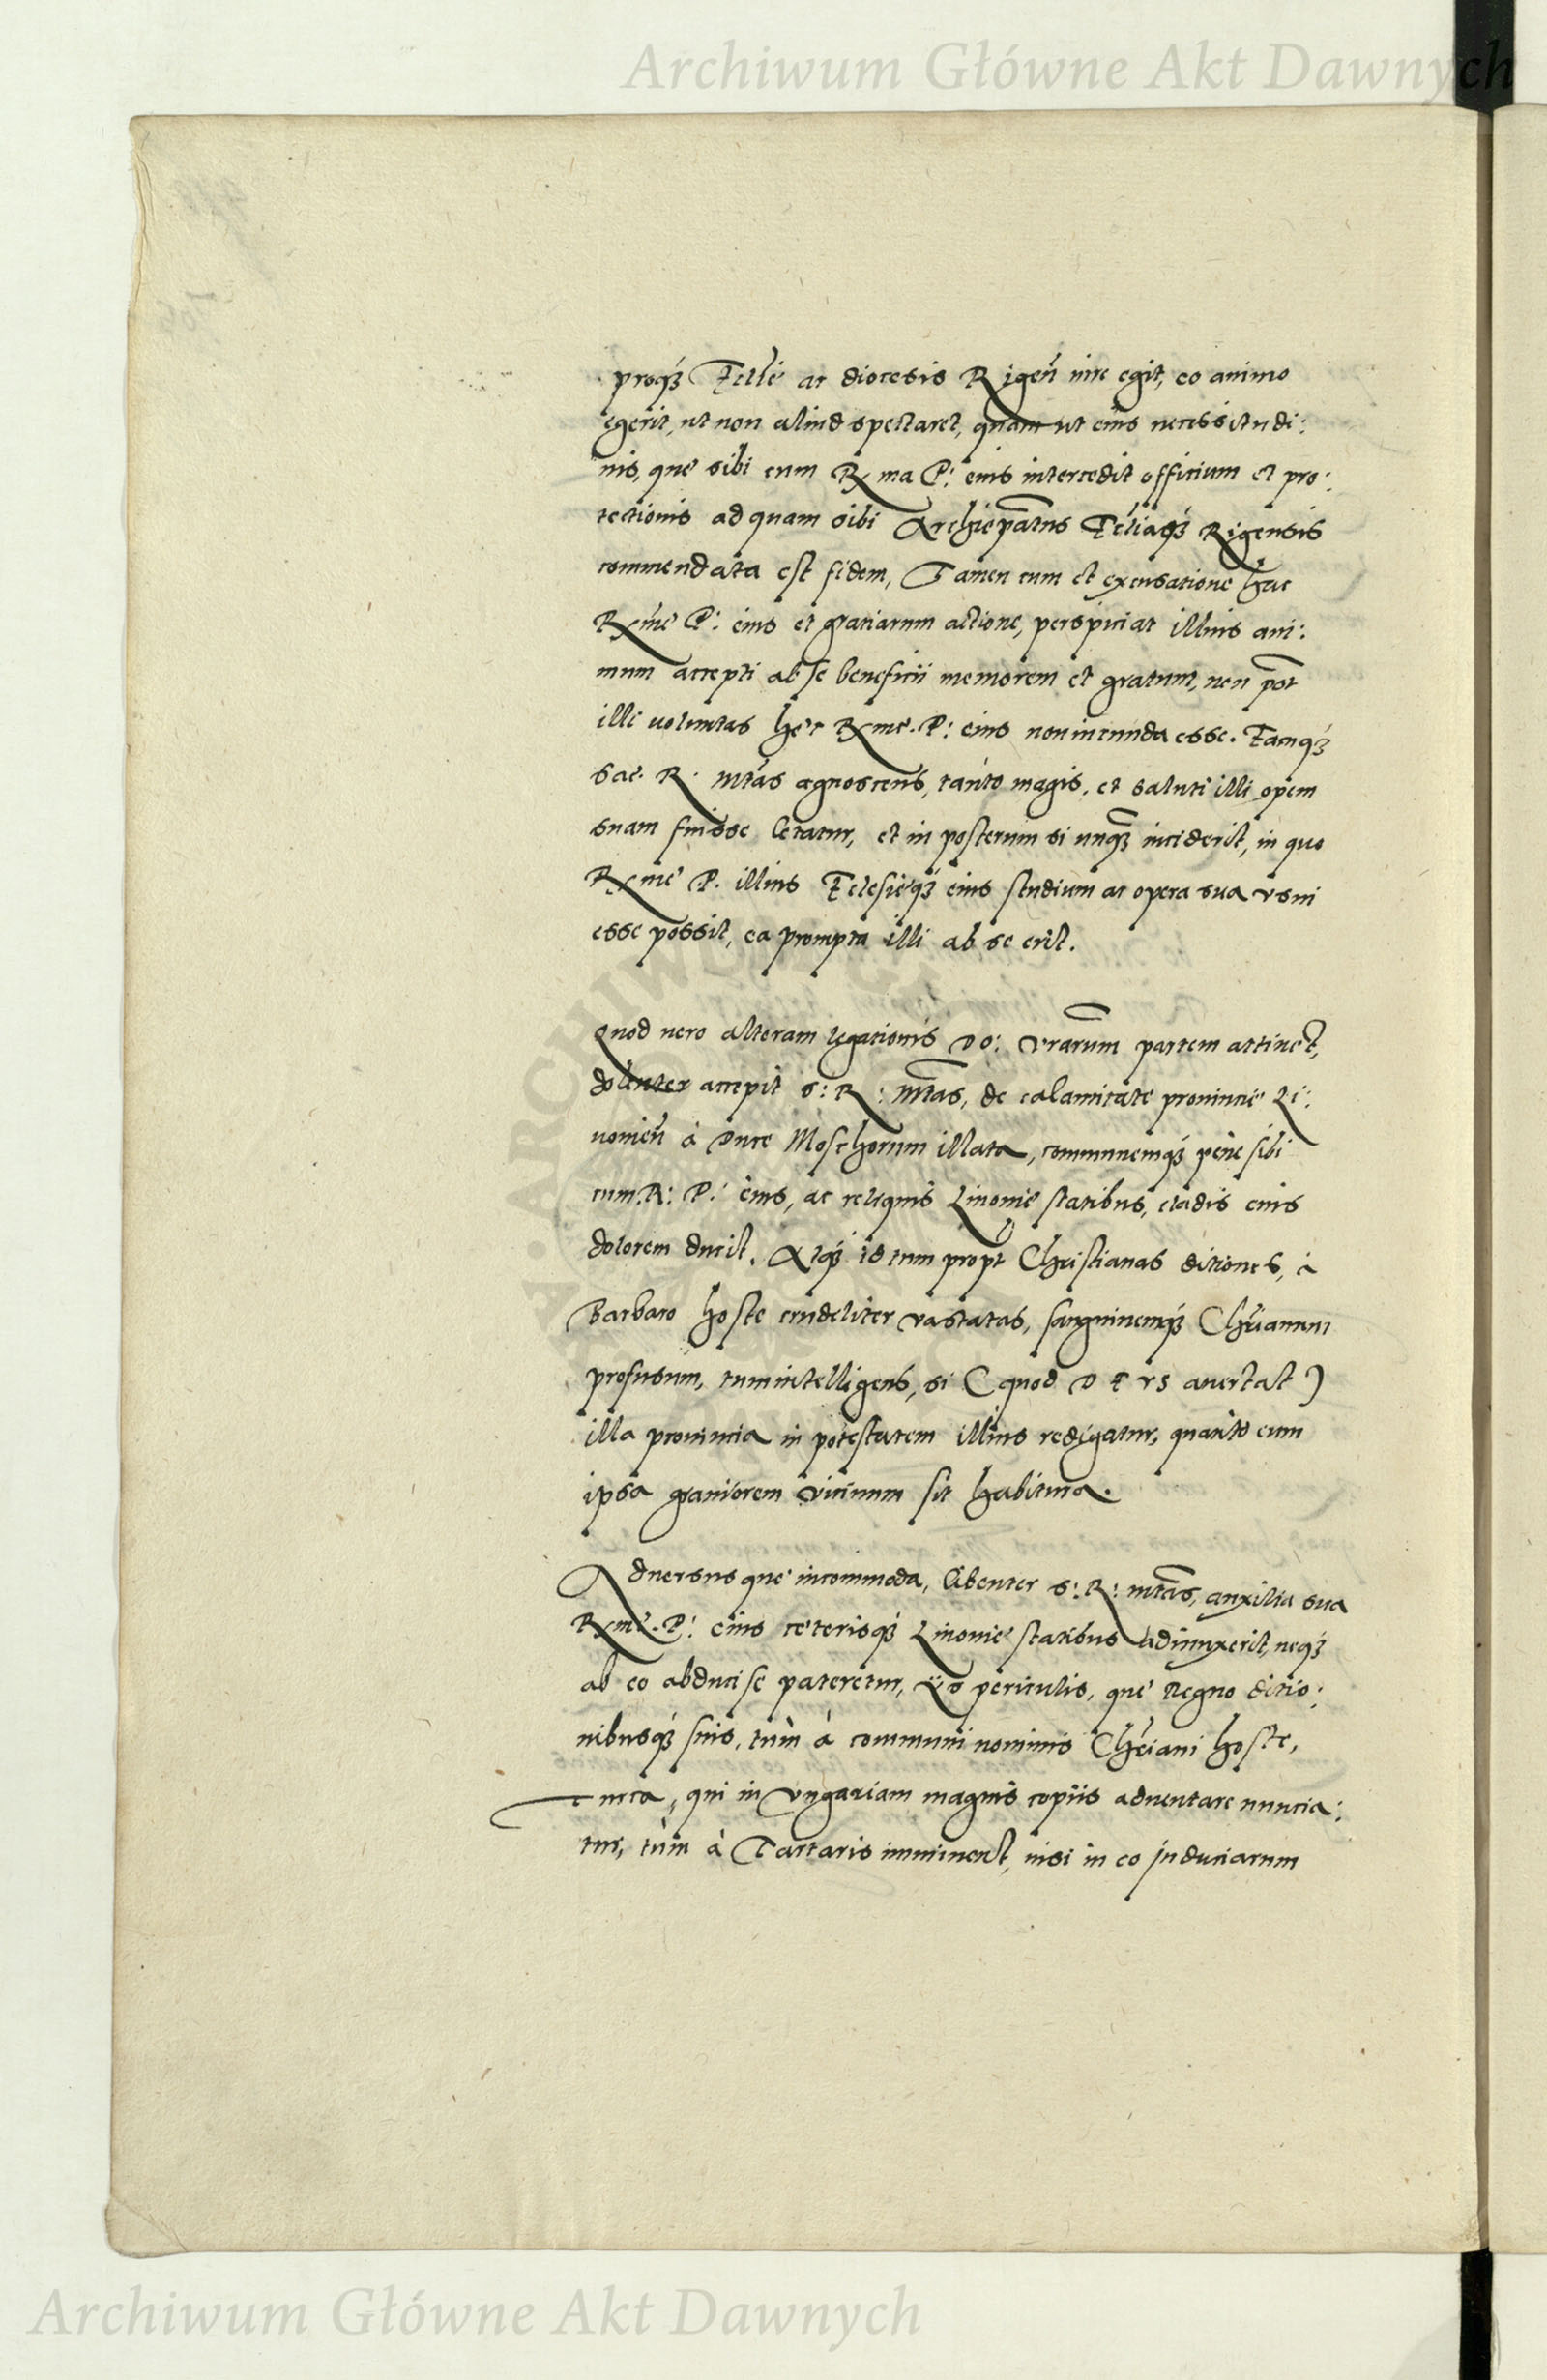 Archiwum Główne Akt Dawnych
proq́ȝ Eccl̃ie ac diocesis Rigeñ iure egit, eo animo
egerit, ut non aliud spectaret, quam ut eius necessitudi:
nis, que sibi cum Rx̃ma P: eius intercedit officium et pro:
tectionis ad quam sibi Archiep̃atus Ecc̃liaq́ȝ Rigensis
commendata est fidem, Tamen cum et excusatione hac
Rx̃me P: eius et gratiarum actione, perspiciat illius ani:
mum accepti ab se beneficii memorem et gratum, non p̃ot
illi voluntas hec Rxme. P: eius non iucunda esse. Eamq́ȝ
Sac. R. Mtãs agnoscens, tanto magis, et saluti illi opem
suam fuisse letatur, et in posterum si unq̃ȝ inciderit, in quo
Rxme P. illius Eclesieq́ȝ eius studium ac opera sua vsui
esse possit, ea prompta illi ab se erit.
Quod vero alteram legationis Do: Vrarũm partem attinet,
dolenter accepit S: R: Mtãs, de calamitate provincie Li:
uonieñ à Duce Moschorum illata, communemq́ȝ pene sibi
cum R: P: eius, ac reliquis Liuonie statibus, cladis eius
dolorem ducit. Atq́ȝ id tum propt Christianas ditiones, à
Barbaro hoste crudeliter vastatas, sanguinemq́ȝ Chr̃ianum
profusum, tum intelligens, si (quod DEVS auertat)
illa prouincia in potestatem illius redigatur, quanto eum
ipsa grauiorem vicinum sit habitura.
Aduersus que incommoda, libenter S: R: Mtãs, auxilia sua
Rxme. P: eius ceterisq́ȝ Liuonie statibus adiunxerit, neq́ȝ
ab eo abduci se pateretur, ÿs periculis, que Regno ditio:
nibusq́ȝ suis, tum à communi nominis Chr̃iani hoste,
Turca, qui in Vngariam magnis copiis aduentare nuncia:
tur, tum à Tartaris imminent, nisi in eo induciarum
ARCHIWUM
Archiwum Główne Akt Dawnych